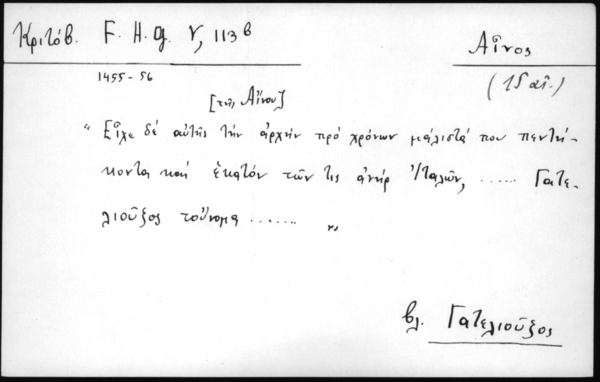 Κριτόβ. F. H. G. V, 113 b
Αἶνος
1455-56
(15 αἰ.)
[τῆς Αἴνου]
"Εἶχε δέ αὐτῆς τήν ἀρχήν πρό χρόνων μάλιστά που πεντή-
κοντα καί ἑκατόν τῶν τις ἀνήρ Ἰταλῶν, ...... Γατε-
λιοῦξος τοὔνομα ....... "
βλ. Γατελιοῦξος